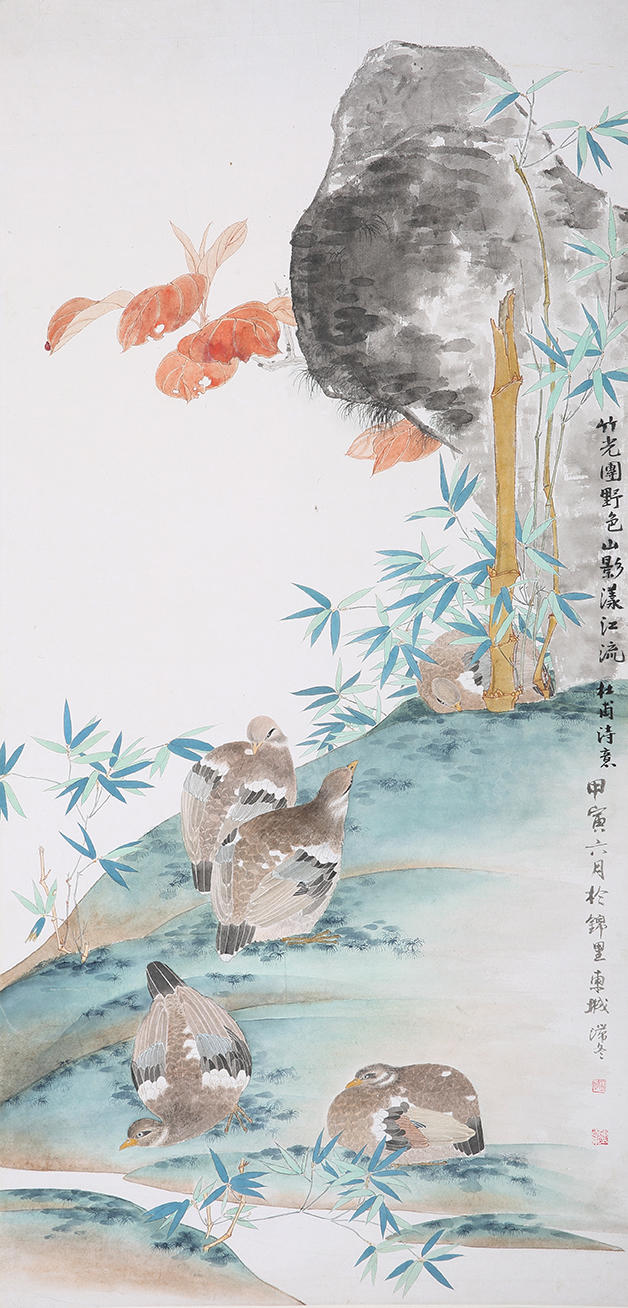 竹光團野色山影漾江流 杜甫詩意 甲寅六月於錦里東城 滯冬